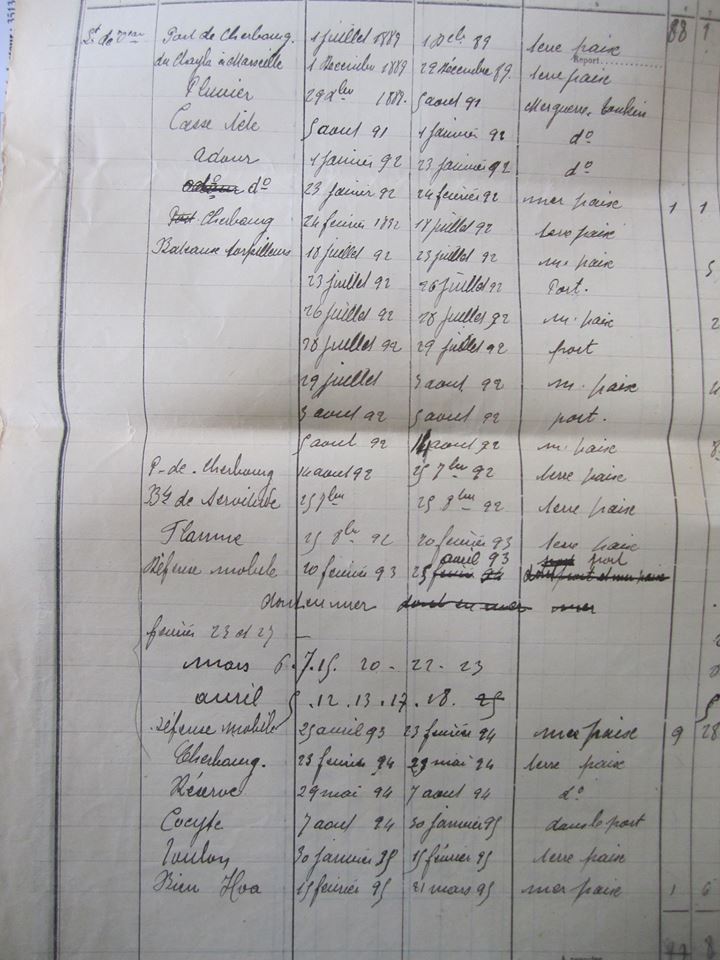 Port de Cherbourg. 1 juillet 1889 1 Dcbr 89 terre paix 88
Report
du Chayla à Marseille 1 Decembre 1889 29 Décembre 89. terre paix
Plumier 29 Xbre 1889. 5 aout 91 Mer guerre. Tonkin
Casse tête 5 aout 91 1 janvier 92 do
Adour 1 janvier 92 23 janvier 92 do
do 23 janvier 92 24 fevrier 92 mer paix 1 1
Port Cherbourg 24 fevrier 1892 18 juillet 92 terre paix
Bateaux torpilleurs 18 juillet 92 23 juillet 92 m. paix
23 juillet 92 26 juillet 92 Port.
26 juillet 92 28 juillet 92 m. paix
28 juillet 92 29 juillet 92 port
29 juillet 3 aout 92 m. paix
3 aout 92 5 aout 92 port.
5 aout 92 14 aout 92 m. paix
P. de Cherbourg 14 aout 92 25 7bre 92 terre paix
Bts de Servitude 25 7bre 25 8bre 92 terre paix
Flamme 25 8bre 92 20 fevrier 93 terre paix
avril 93 port
Défense mobile 20 fevrier 93 25 dont port et mer paix
dont en mer dont en mer mer
fevrier 23 et 27 —
mars 6. 7. 15. 20 - 22 - 23
avril 5 . 12 . 13 . 17 . 18 . 25
Défense mobile 25 avril 93 23 fevrier 94 mer paix 9 28
Cherbourg. 23 fevrier 94 29 mai 94 terre paix
Réserve 29 mai 94 7 aout 94 do
Cocyte 7 aout 94 30 janvier 95 dans le port
Toulon 30 janvier 95 15 février 95 terre paix
Bien Hoa 15 février 95 21 mars 95 mer paix 1 6